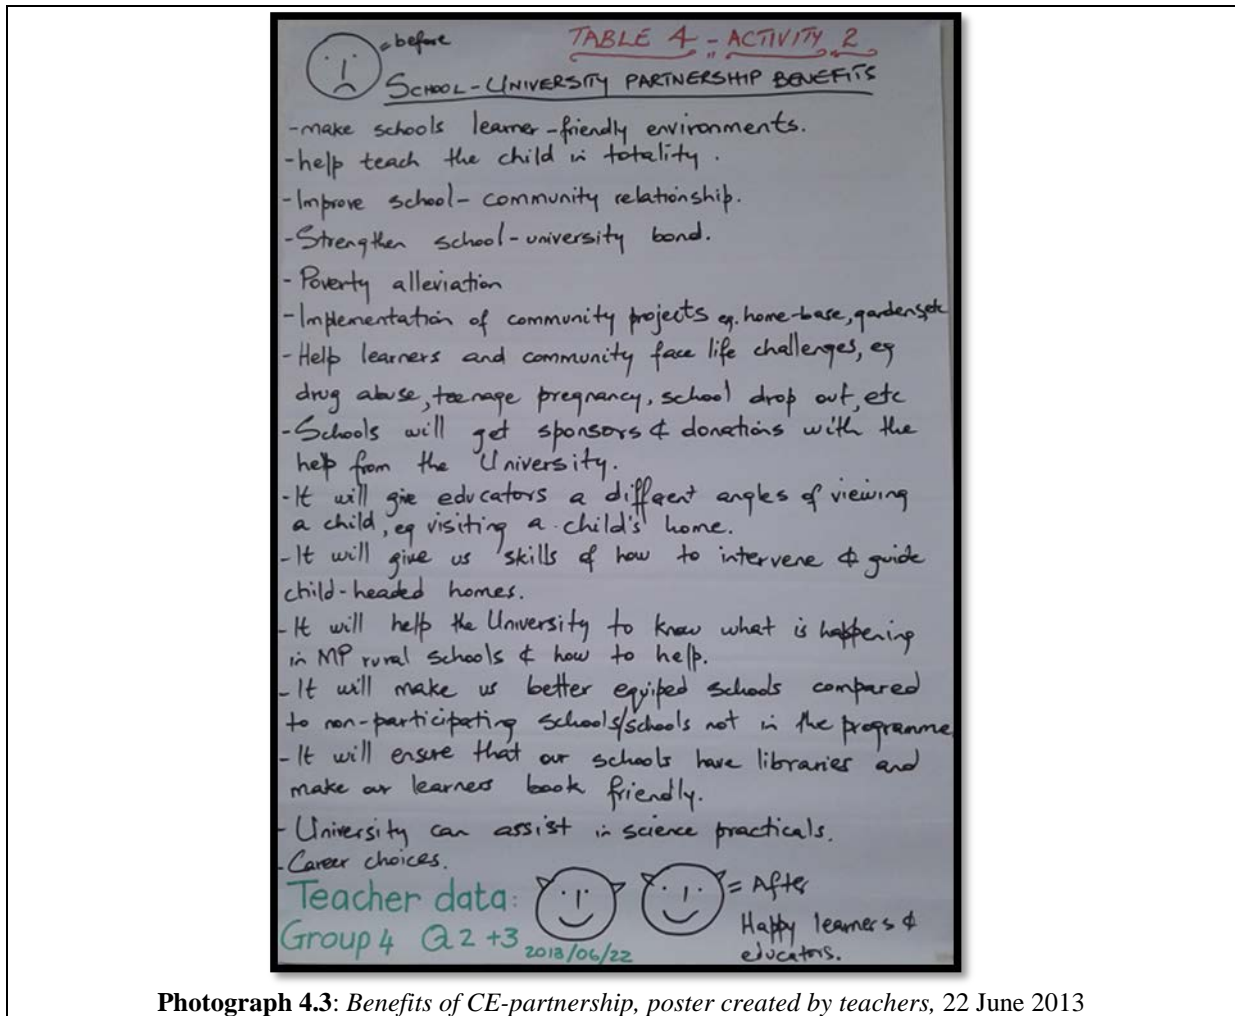 = before
TABLE 4 - ACTIVITY 2
SCHOOL - UNIVERSITY PARTNERSHIP BENEFITS
- make schools learner - friendly environments.
- help teach the child in totality.
- Improve school - community relationship.
- Strengthen school - university bond.
- Poverty alleviation
- Implementation of community projects eg. home-base, gardens, etc
- Help learners and community face life challenges, eg
drug abuse, teenage pregnancy, school drop out, etc
- Schools will get sponsors & donations with the
help from the University.
- It will give educators a different angles of viewing
a child, eg visiting a child's home.
- It will give us skills of how to intervene & guide
child-headed homes.
- It will help the University to know what is happening
in MP rural schools & how to help.
- It will make us better equiped schools compared
to non-participating schools/schools not in the programme
- It will ensure that our schools have libraries and
make our learners book friendly.
- University can assist in science practicals.
- Career choices.
Teacher data:
Group 4 Q2 +3
2013/06/22
= After
Happy learners &
educators.
Photograph 4.3: Benefits of CE-partnership, poster created by teachers, 22 June 2013